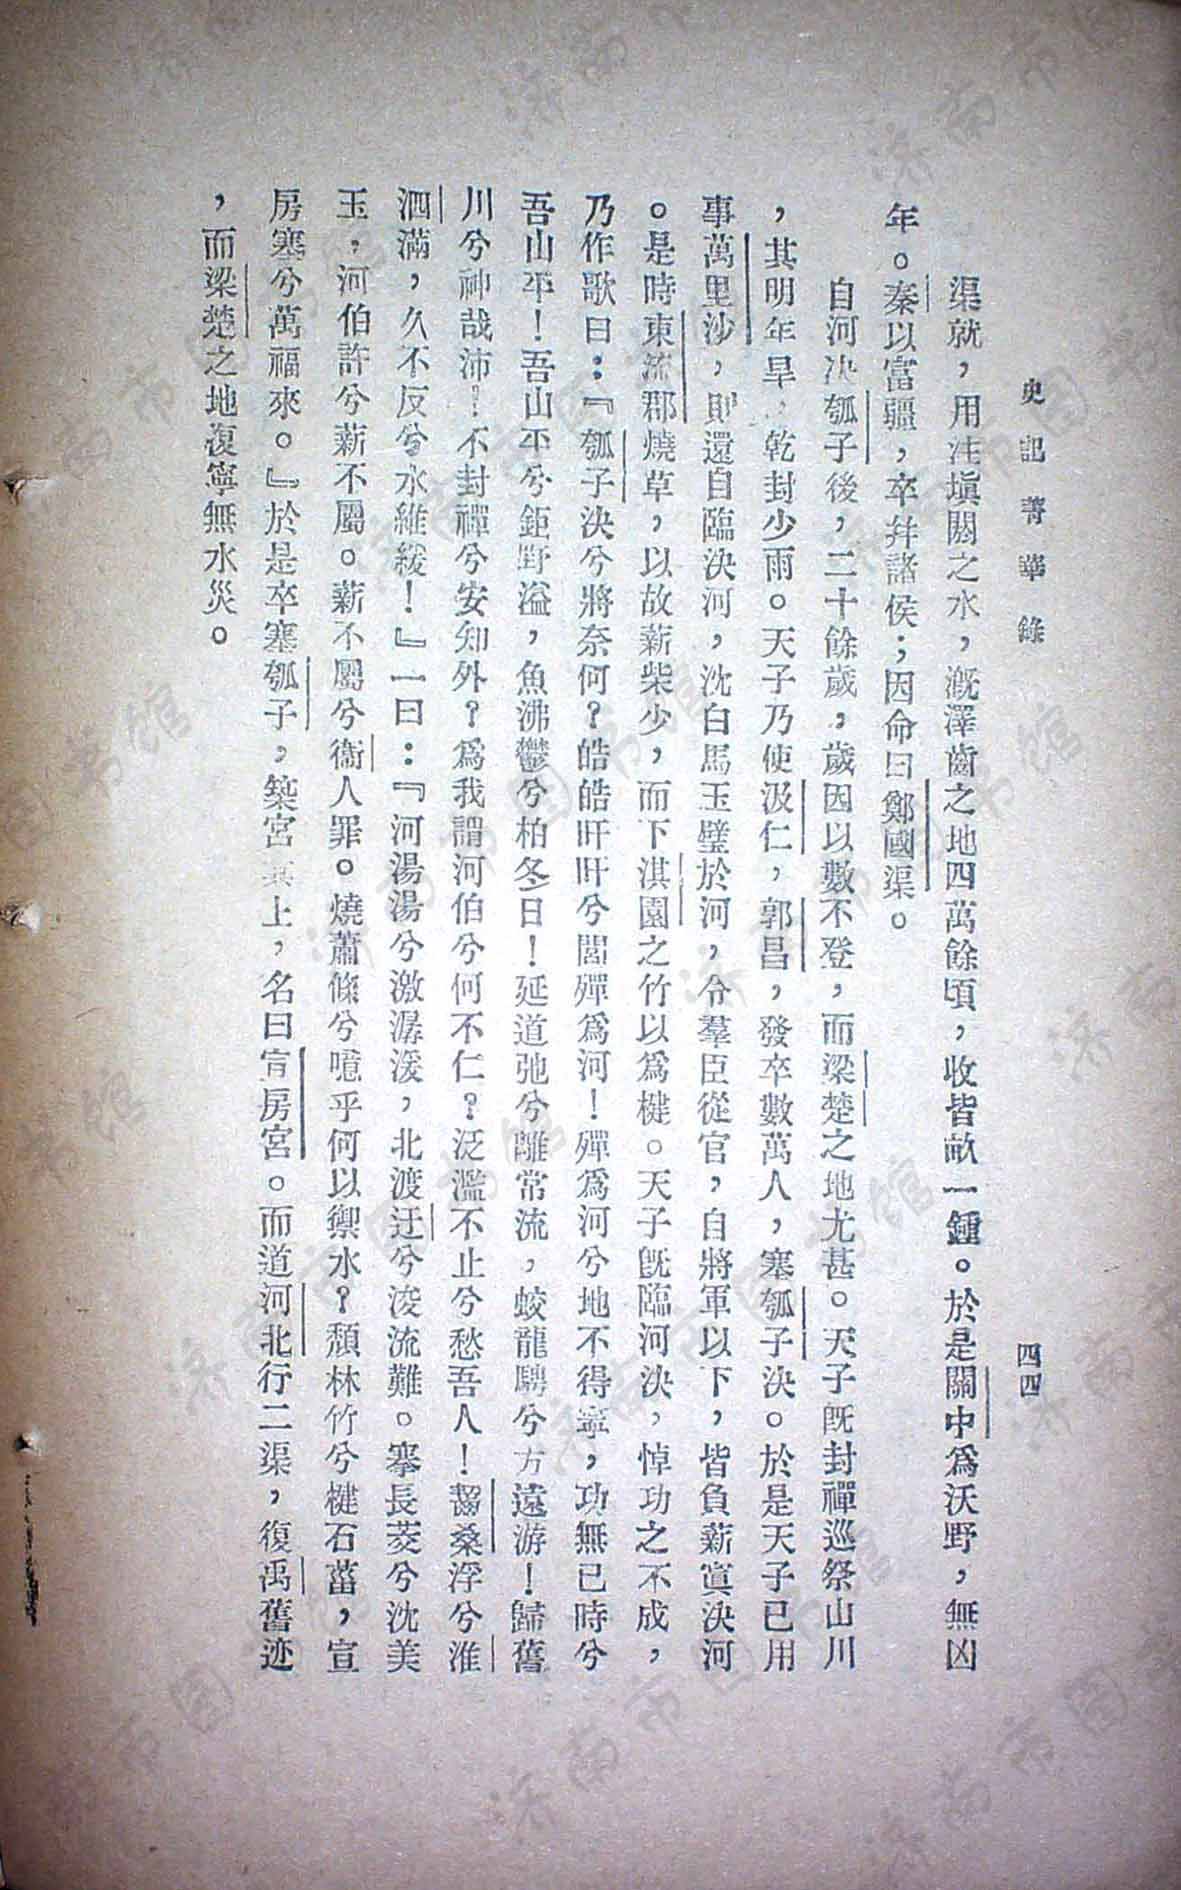 史記菁華錄
四四
渠就，用注塡閼之水，漑澤鹵之地四萬餘頃，收皆畝一鍾。於是關中爲沃野，無凶
年。秦以富疆，卒幷諸侯；因命曰鄭國渠。
自河決瓠子後，二十餘歲，歲因以數不登，而梁楚之地尤甚。天子旣封禪巡祭山川
，其明年旱，乾封少雨。天子乃使汲仁，郭昌，發卒數萬人，塞瓠子決。於是天子已用
事萬里沙，即還自臨決河，沈白馬玉璧於河，令羣臣從官，自將軍以下，皆負薪窴決河
。是時東流郡燒草，以故薪柴少，而下淇園之竹以爲楗。天子旣臨河決，悼功之不成，
乃作歌曰：『瓠子決兮將奈何？皓皓旰旰兮閭殫爲河！殫爲河兮地不得寧，功無已時兮
吾山平！吾山平兮鉅野溢，魚沸鬱兮柏冬日！延道弛兮離常流，蛟龍騁兮方遠游！歸舊
川兮神哉沛！不封禪兮安知外？爲我謂河伯兮何不仁？泛濫不止兮愁吾人！齧桑浮兮淮
泗滿，久不反兮水維緩！』一曰：『河湯湯兮激潺湲，北渡迂兮浚流難。搴長茭兮沈美
玉，河伯許兮薪不屬。薪不屬兮衞人罪。燒蕭條兮噫乎何以禦水？頹林竹兮楗石菑，宣
房塞兮萬福來。』於是卒塞瓠子，築宮其上，名曰宣房宮。而道河北行二渠，復禹舊迹
，而梁楚之地復寧無水災。